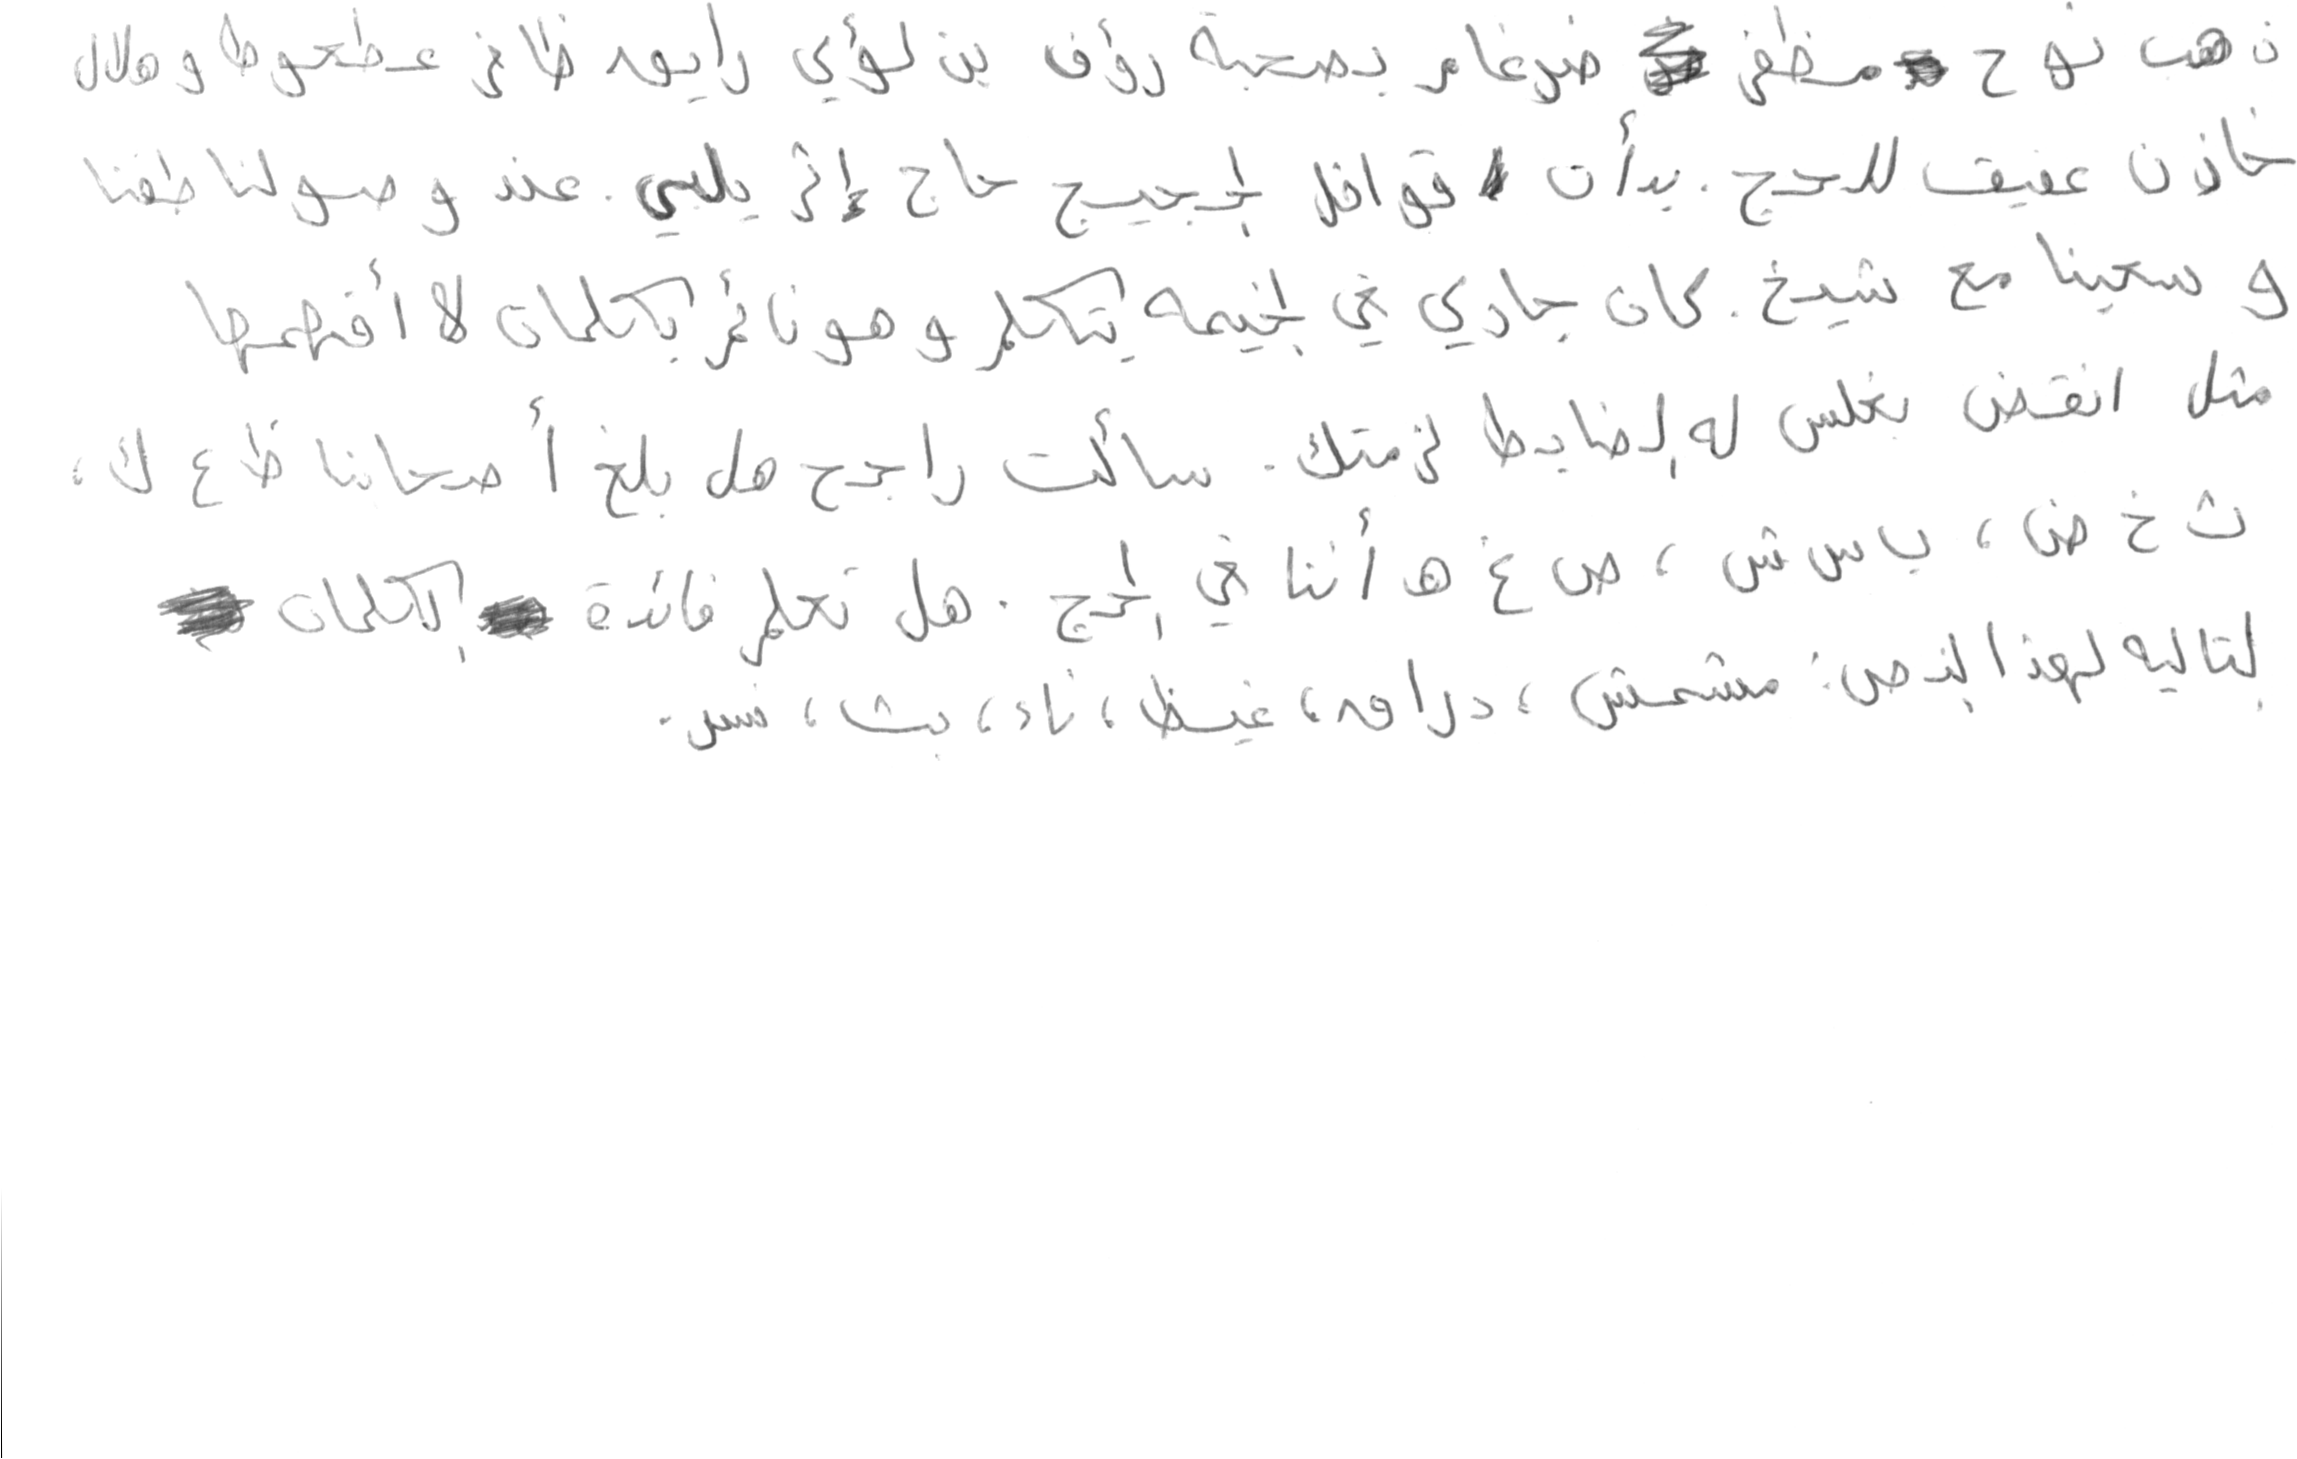 ذهب نوح مظفر ضرغام بصحبة رؤف بن لؤي رايق ظافر عطعوط وهلال
خازن عفيف للحج . بدأت قوافل الحجيج حاج إثر يلبي . عند وصولنا طفنا
وسعينا مع شيخ . كان جاري في الخيمه يتكلم وهو نائم بكلمات لا أفهمها
مثل انقض بغلس له الضابط لزمتك . سألت راجح هل بلغ أصحابنا ظ ع ك ،
ث خ ض ، ب س ش ، ص غ ه أننا في الحج . هل تعلم فائدة الكلمات
التاليه لهذا النص : مشمش ، دراق ، غيظ ، ناء ، بث ، نسر .